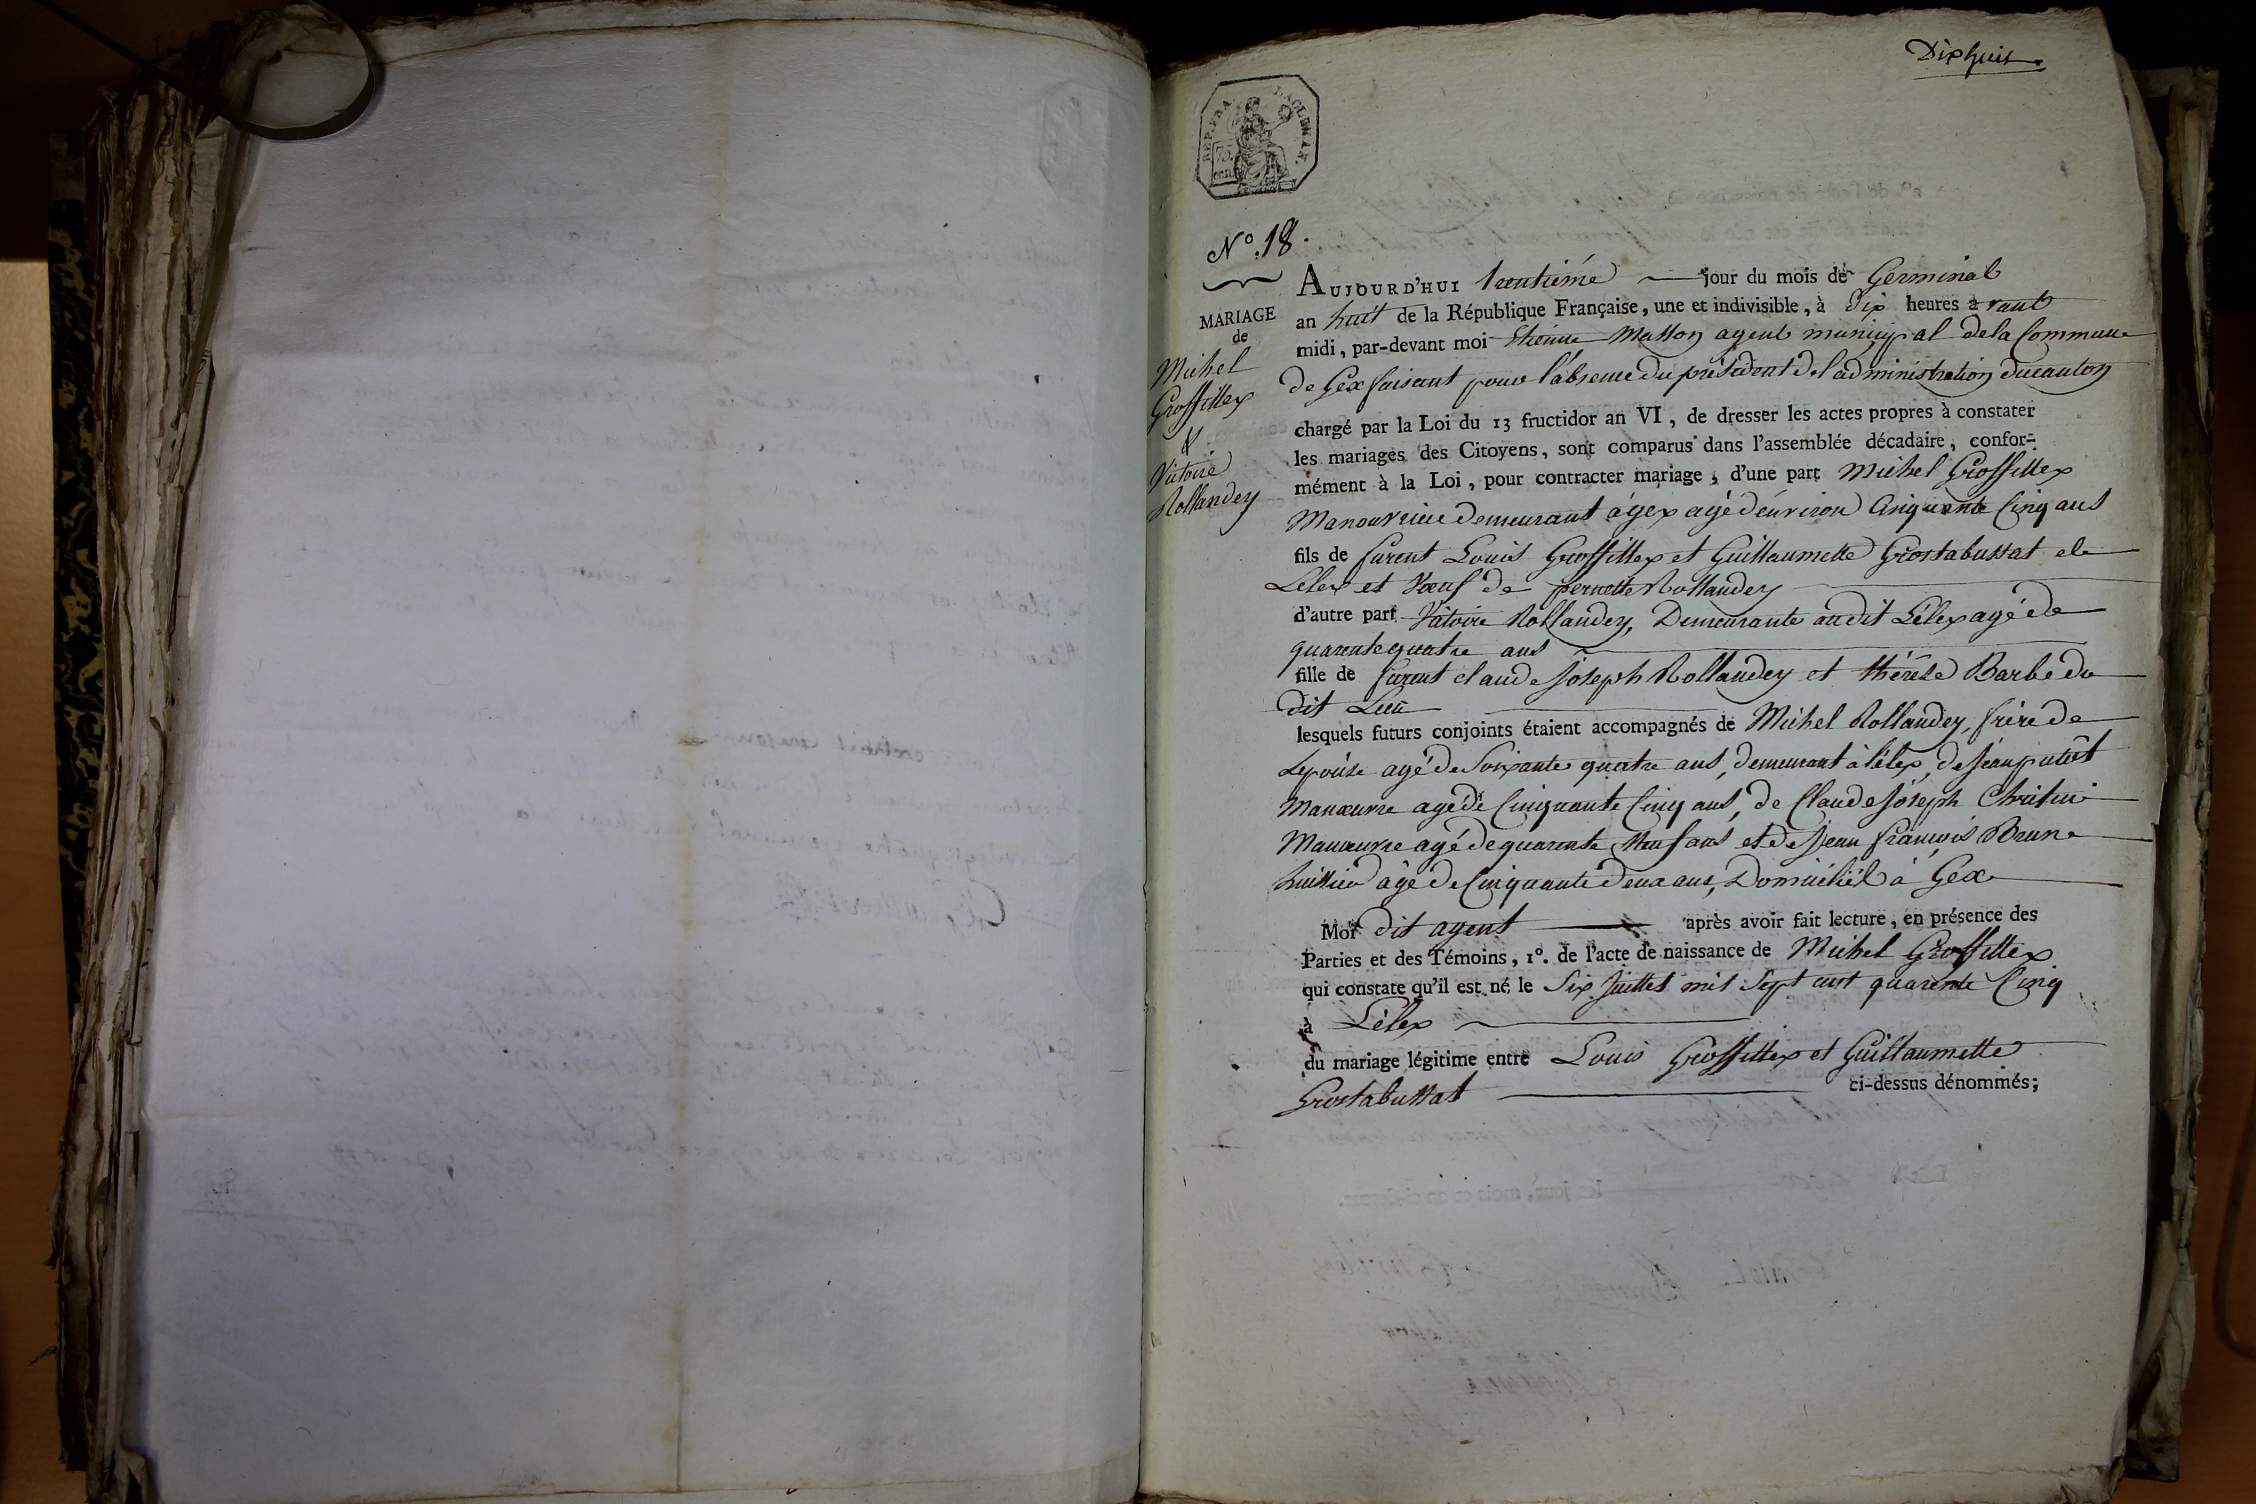 Dix huit
REP. FRA. 75. cent.
N.º 18.
MARIAGE
de
Michel
Grossillex
&
Victoire
Rollandey
AUJOURD'HUI trentième jour du mois de Germinal
an huit de la République Française, une et indivisible, à dix heures avant
midi, par-devant moi Etienne Masson agent municipal de la Commune
de Gex faisant pour l'absence du président de l'administration du canton
chargé par la Loi du 13 fructidor an VI, de dresser les actes propres à constater
les mariages des Citoyens, sont comparus dans l'assemblée décadaire, confor-
mément à la Loi, pour contracter mariage, d'une part Michel Grossillex
Manouvrier demeurant à gex agé d'environ Cinquante Cinq ans
fils de furent Louis Grossillex et Guillaumette Grostabussat de
Lélex et Vœuf de pernette Rollandey
d'autre part Victoire Rollandey, Demeurante audit Lélex agé de
quarente quatre ans
fille de furent claude Joseph Rollandey et thérèse Barbe du
dit Lieu
lesquels futurs conjoints étaient accompagnés de Michel Rollandey, frère de
Lepouse agé de Soixante quatre ans, demeurant à lélex, de Jean
Manœuvre agé de Cinquante Cinq ans, de Claude Joseph
Manœuvre agé de quarente Neuf ans et de Jean françois Brun
huissier âgé de Cinquante deux ans, Domicilié à Gex
Moi dit agent après avoir fait lecture, en présence des
Parties et des Témoins, 1º. de l'acte de naissance de Michel Grossillex
qui constate qu'il est né le Six Juillet mil Sept cent quarente Cinq
à Lélex
du mariage légitime entre Louis Grossillex et Guillaumette
Grostabussat ci-dessus dénommés;